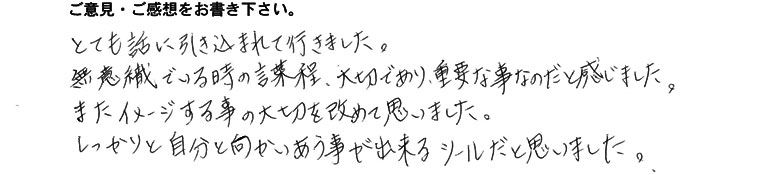 ご意見・ご感想をお書き下さい。
とても話に引き込まれて行きました。
無意織でいる時の言葉程、大切であり、重要な事なのだと感じました。
またイメージする事の大切を改めて思いました。
しっかりと自分と向かいあう事が出来るツールだと思いました。